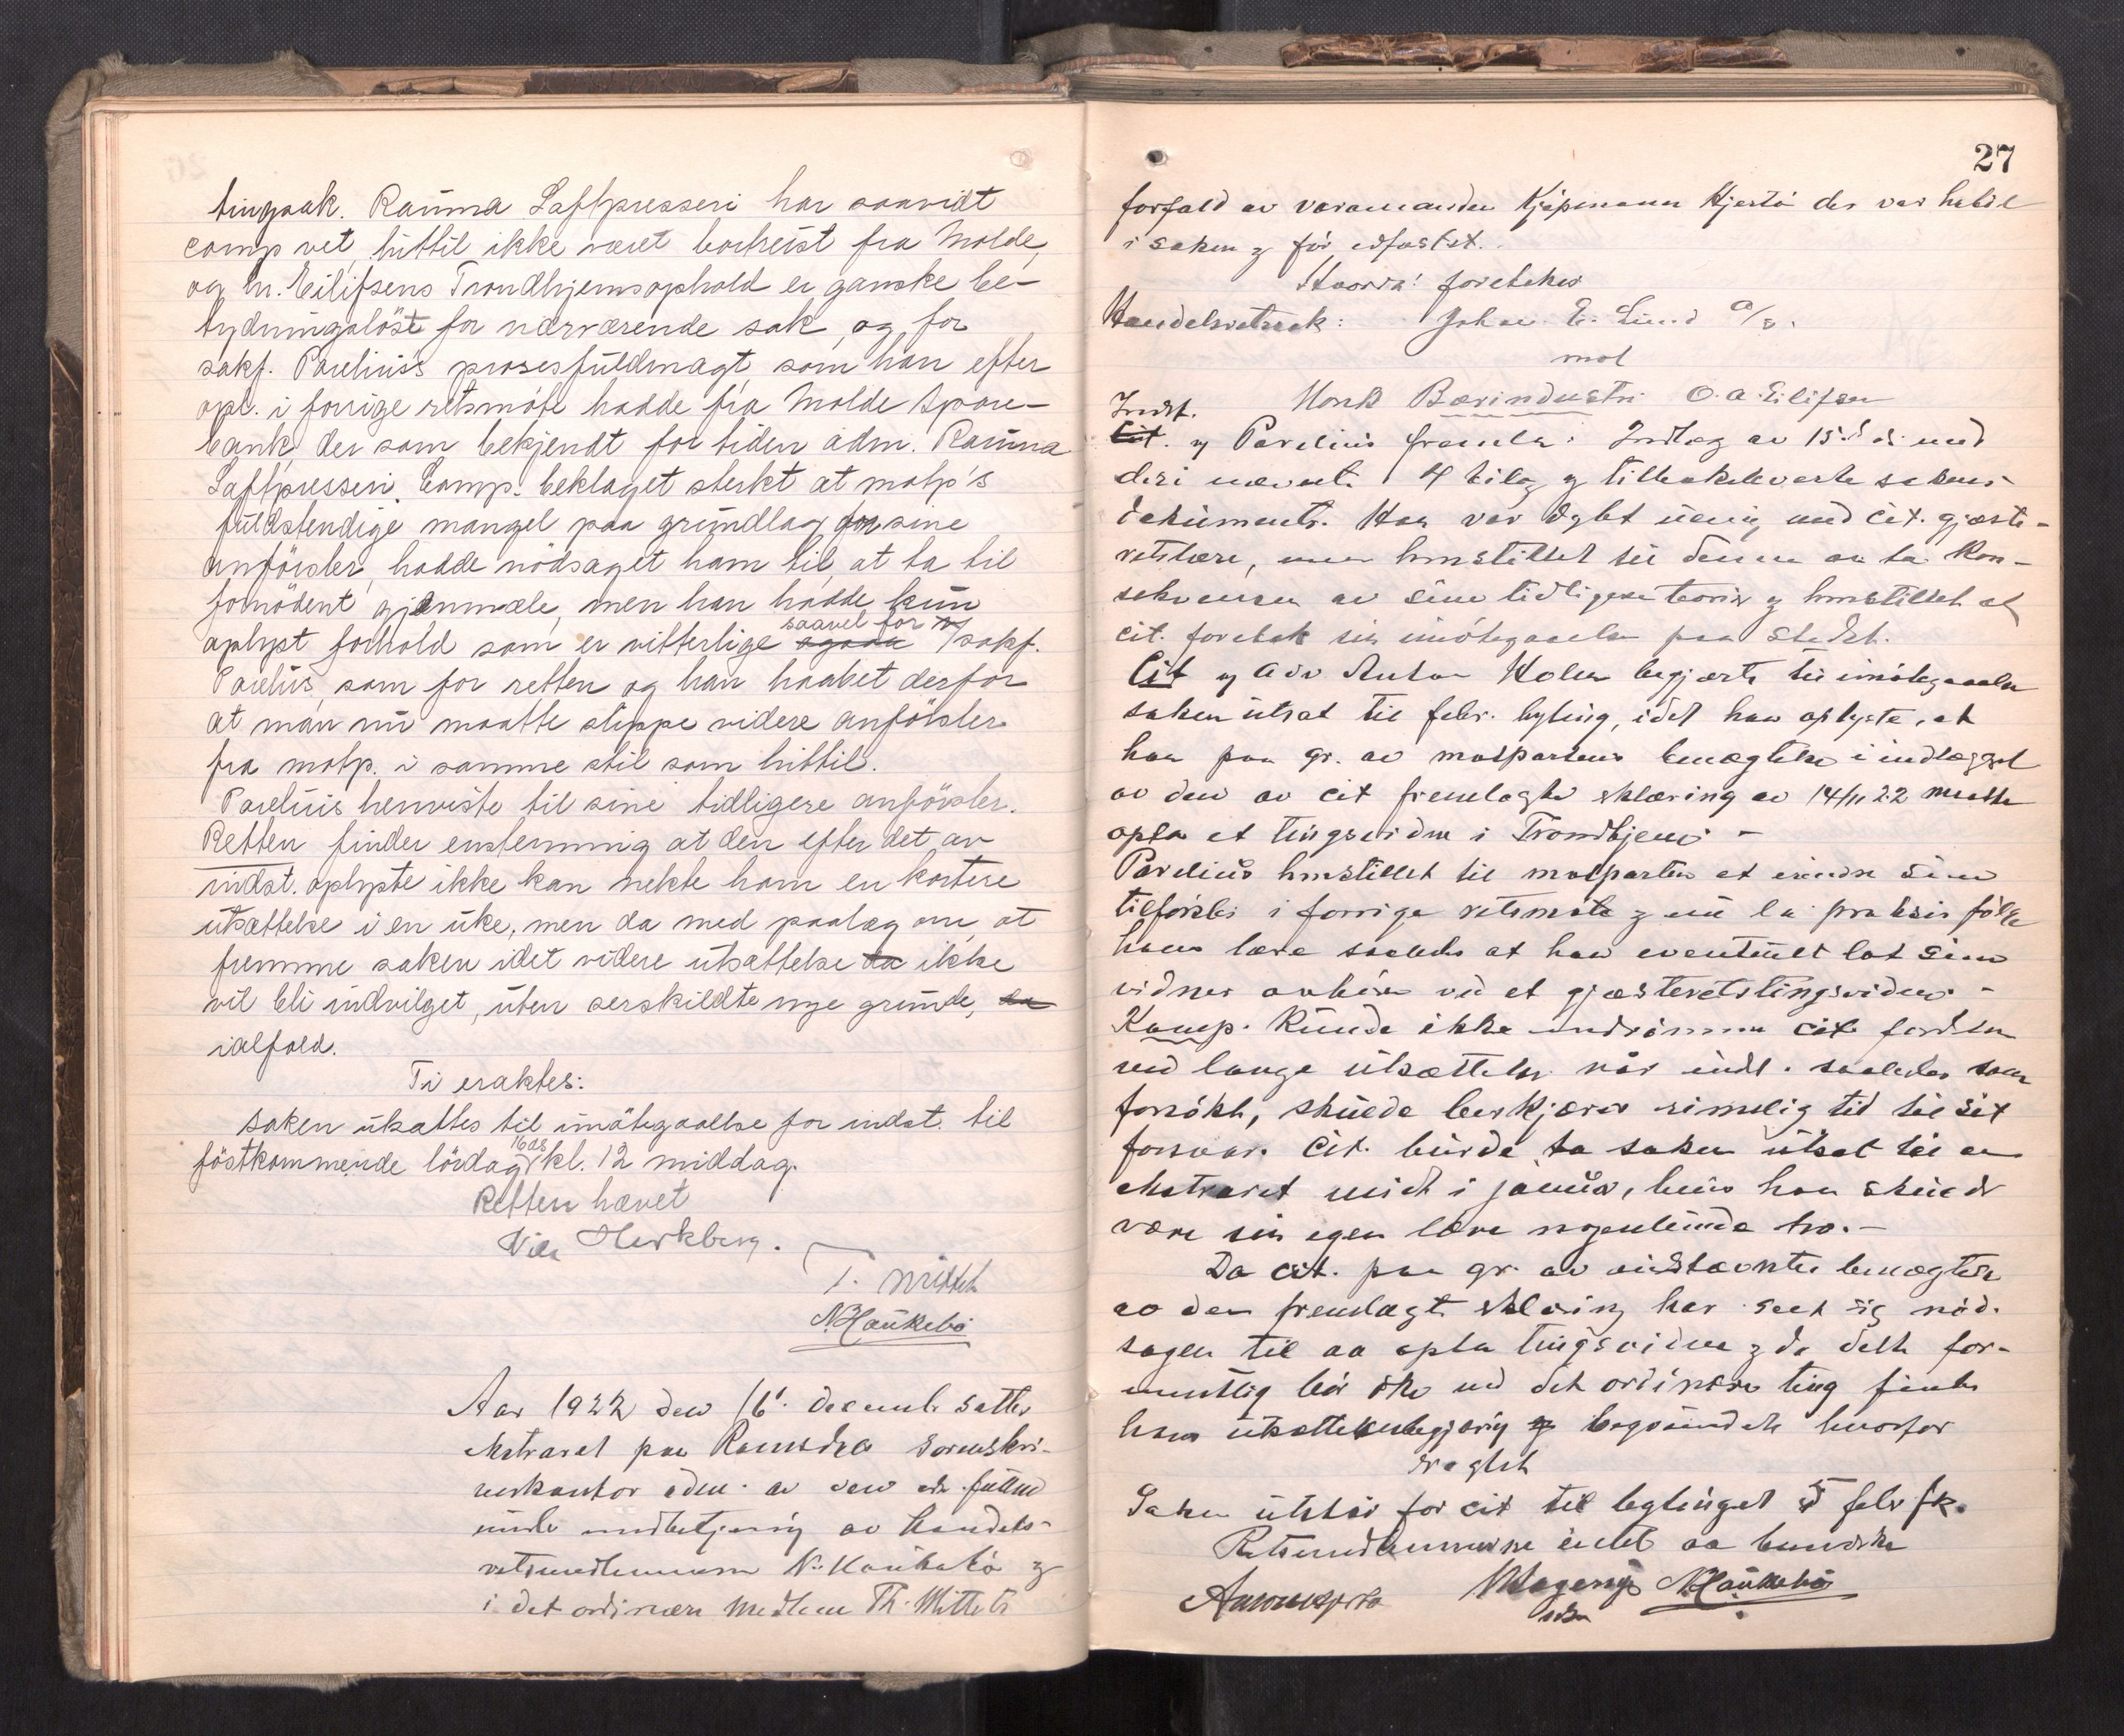 tingsak. Rauma Saftpresseri har saavidt
comp vet, hittil ikke været bortreist fra Molde,
og hr. Eilifsens Trondhjemsophold er ganske be-
tydningsløst for nærværende sak, og for
sakf. Parelius's prosesfuldmagt som han efter
opl. i forrige retsmøte hadde fra Molde Spare-
bank, der som bekjendt for tiden adm. Rauma
Saftpresseri. Comp. beklaget sterkt at motp's
fuldstendige mangel paa grundlag for sine
anførsler, hadde nødsaget ham til, at ta til
fornødent gjenmæle, men han hadde kun
oplyst forhold som er vitterlige saavel for sakf.
Parelius, som for retten og han haabet derfor
at man nu maatte slippe videre anførsler
fra motp. i samme stil som hittil.
Parelius henviste til sine tidligere anførsler.
Retten finder enstemmig at den efter det av
indst. oplyste ikke kan nekte ham en kortere
utsættelse i en uke, men da med paalæg om, at
fremme saken idet videre utsættelse da ikke
vil bli indvilget, uten serskildte nye grunde, da
ialfald.
Ti eraktes:
saken utsættes til imøtegaaelse for indst. til
føstkommende lørdag 16 ds kl. 12 middag.
Retten hævet
Nils Herkberg.
T. Mittet
N. Haukebø
Aar 1922 den 16. decembr sattes
ekstraret paa Romsdal sorenskri-
verkontor adm. av den edsv. fuldm
under medbetjening av handels-
retsmedlemmene N. Haukebø og
i det ordinære medlem Th. Mittets
27
forfald av varamanden Kjøpmann Hjertø der var habil
i saken og før edfæstet.
Hvorpaa foretokes
Handelsretssak: Johan E. Lund a/s.
mot
Norsk Bærindustri O. A. Eilifsen
Indst.
Cit. v Parelius fremla: Indlæg av 15. ds. med
deri nævnte 4 bilag og tilbakeleverte sakens
dokumenter. Han var dybt uenig med cit. gjæste-
retslære, men henstillet til denne aa ta kon-
sekvensen av sine tidligere teorier og henstillet at
cit. foretok sin imøtegaaelse paa stedet.
Cit v adv Anton Holen begjærte til imøtegaaelse
saken utsat til febr. byting, idet han oplyste, at
han paa gr. av motpartens benægtelse i indlægget
av den av cit fremlagte erklæring av 14/11 22 maatte
opta et tingsvidne i Trondhjem. -
Parelius henstillet til motparten at erindre sine
tilførsler i forrige retsmøte og nu la praksis følge
hans lære saaledes at han eventuelt lot sine
vidner avhøre ved et gjæsteretstingsvidne. -
Komp. kunde ikke indrømme cit. fordelen
ved lange utsættelser når indst. saaledes som
forsøkt, skulde berkjæres rimelig tid til sit
forsvar. Cit. burde ta saken utsat til en
ekstraret midt i januar, hvis han skulde
være sin egen lære nogenlunde tro. -
Da cit. paa gr. av indstævntes benægtelse
av den fremlagte erklæring har seet sig nød-
saget til aa opta tingsvidne og da dette for-
nuftig bør ske ved det ordinære ting findes
hans utsættelsesbegjæring begrundet hvorfor
eragtet
Saken utstår for cit til bytinget 5 febr fk.
Retsmedlemmerne intet aa bemerke
N. Haukebø